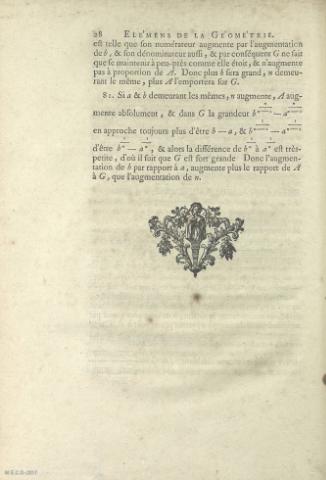 28 ELE'MENS DE LA GEOMETRIE.
est telle que son numérateur augmente par l'augmentation
de b, & son dénominateur aussi, & par conséquent G ne fait
que se maintenir à peu-près comme elle étoit, & n'augmente
pas à proportion de A. Donc plus b sera grand, n demeu-
rant le même, plus A l'emportera sur G.
81. Si a & b demeurant les mêmes, n augmente, A aug-
mente absolument, & dans G la grandeur
en approche toujours plus d'être b — a, &
d'être & alors la différence de à est très-
petite, d'où il suit que G est fort grande Donc l'augmen-
tation de b par rapport à a, augmente plus le rapport de A
à G, que l'augmentation de n.